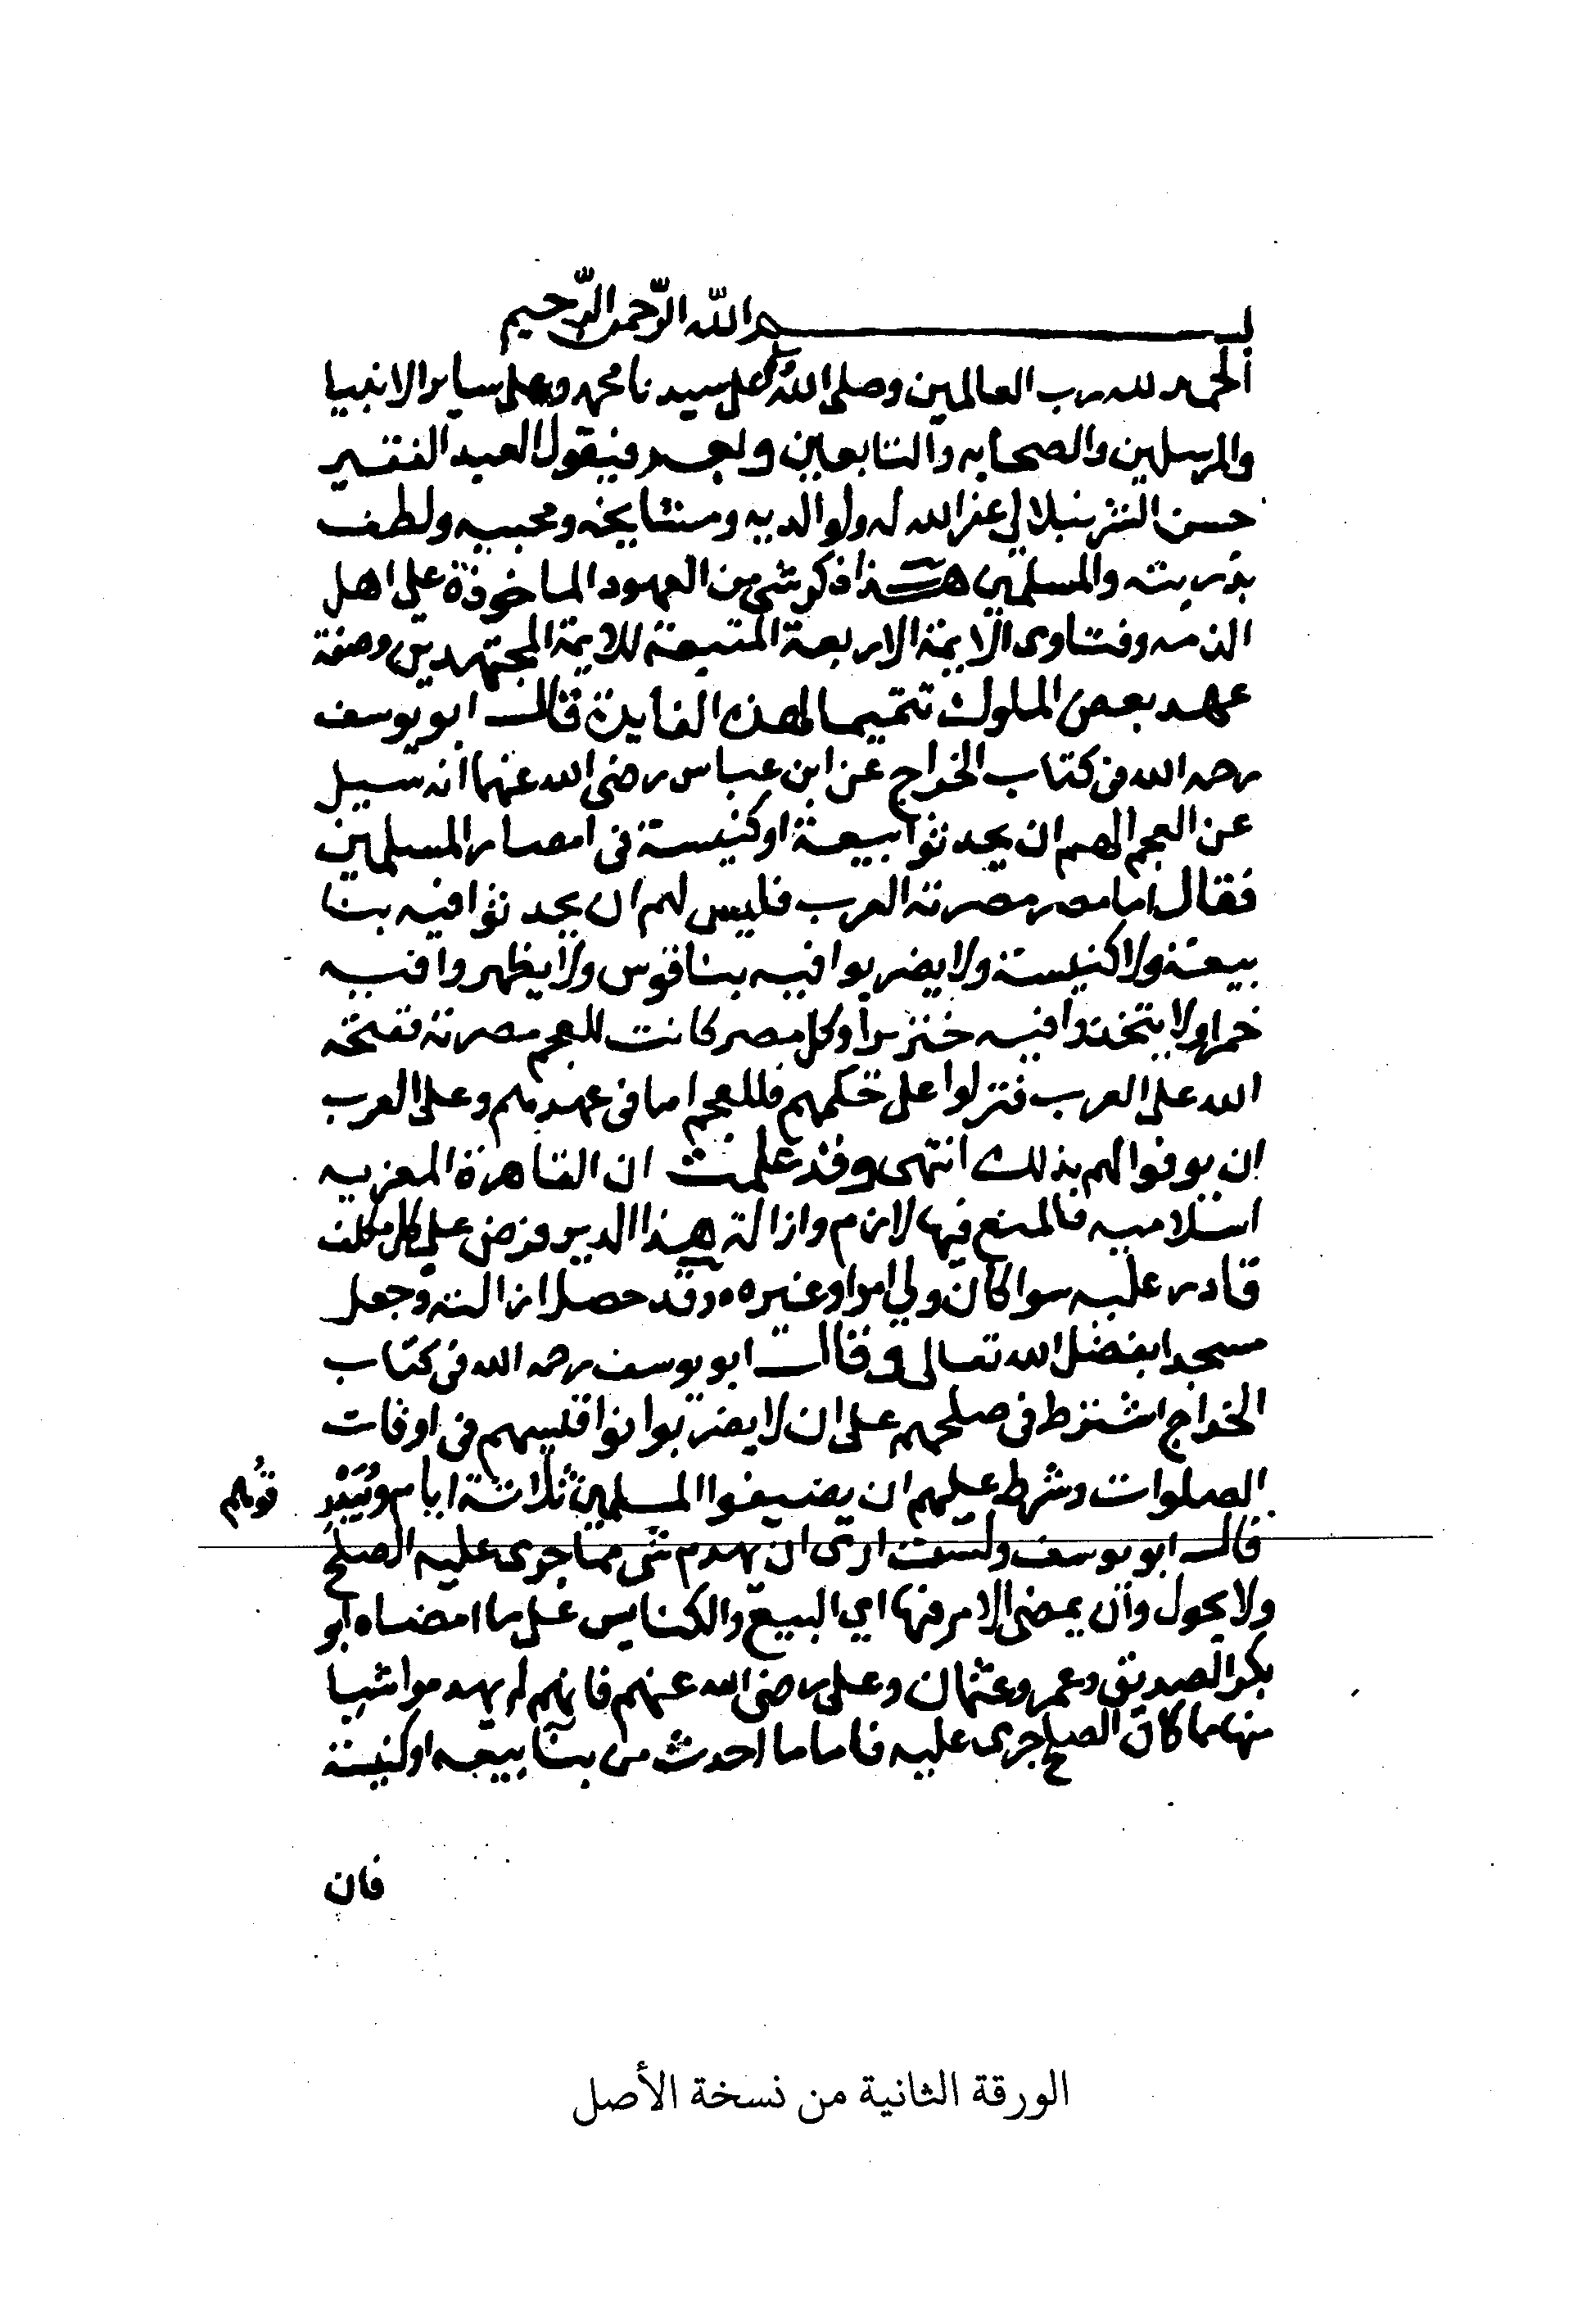 بسم الله الرحمن الرحيم
الحمد لله رب العالمين وصلى الله وسلم على سيدنا محمد وعلى ساير الانبيا
والمرسلين والصحابه والتابعين وبعد فيقول العبد الفقير
حسن الشرنبلالي غفر الله له ولوالديه ومشايخه ومحبيه ولطف
بذريته والمسلمين هذا ذكر شي من العهود الماخوذة على اهل
الذمه وفتاوى الايمة الاربعة المتبعة للايمة المجتهدين وصفة
عهد بعض الملوك تتميما لهذه الفايدة قال ابو يوسف
رحمه الله في كتاب الخراج عن ابن عباس رضى الله عنهما انه سيل
عن العجم الهم ان يحدثوا بيعة او كنيسة في امصار المسلمين
فقال اما مصر مصرته العرب فليس لهم ان يحدثوا فيه بنا
بيعة ولا كنيسة ولا يضربوا فيه بناقوس ولا يظهروا فيه
خمرا ولا يتخذوا فيه خنزيرا وكل مصر كانت للعجم مصرته ففتحه
الله على العرب فنزلوا على حكمهم فللعجم ما في عهدهم وعلى العرب
ان يوفوا لهم بذلك انتهى وقد علمت ان القاهرة المعزيه
اسلاميه فالمنع فيها لازم وازالة هذا الدير فرض على كل مكلف
قادر عليه سوا كان ولي امر او غيره وقد حصل ازالته وجعل
مسجدا بفضل الله تعالى وقال ابو يوسف رحمه الله في كتاب
الخراج اشترط في صلحهم على ان لا يضربوا نواقيسهم في اوقات
الصلوات وشرط عليهم ان يضيفوا المسلمين ثلاثة ايام
قال ابو يوسف ولست ارى ان يهدم شي مما جرى عليه الصلح
ولا يحول وان يمضى الامر فيها اي البيع والكنايس على ما امضاه ابو
بكر الصديق وعمر وعثمان وعلى رضى الله عنهم فانهم لم يهدموا شيا
منها مما كان الصلح جرى عليه فاما ما احدث من بنا بيعه او كنيسة
فان
الورقة الثانية من نسخة الأصل